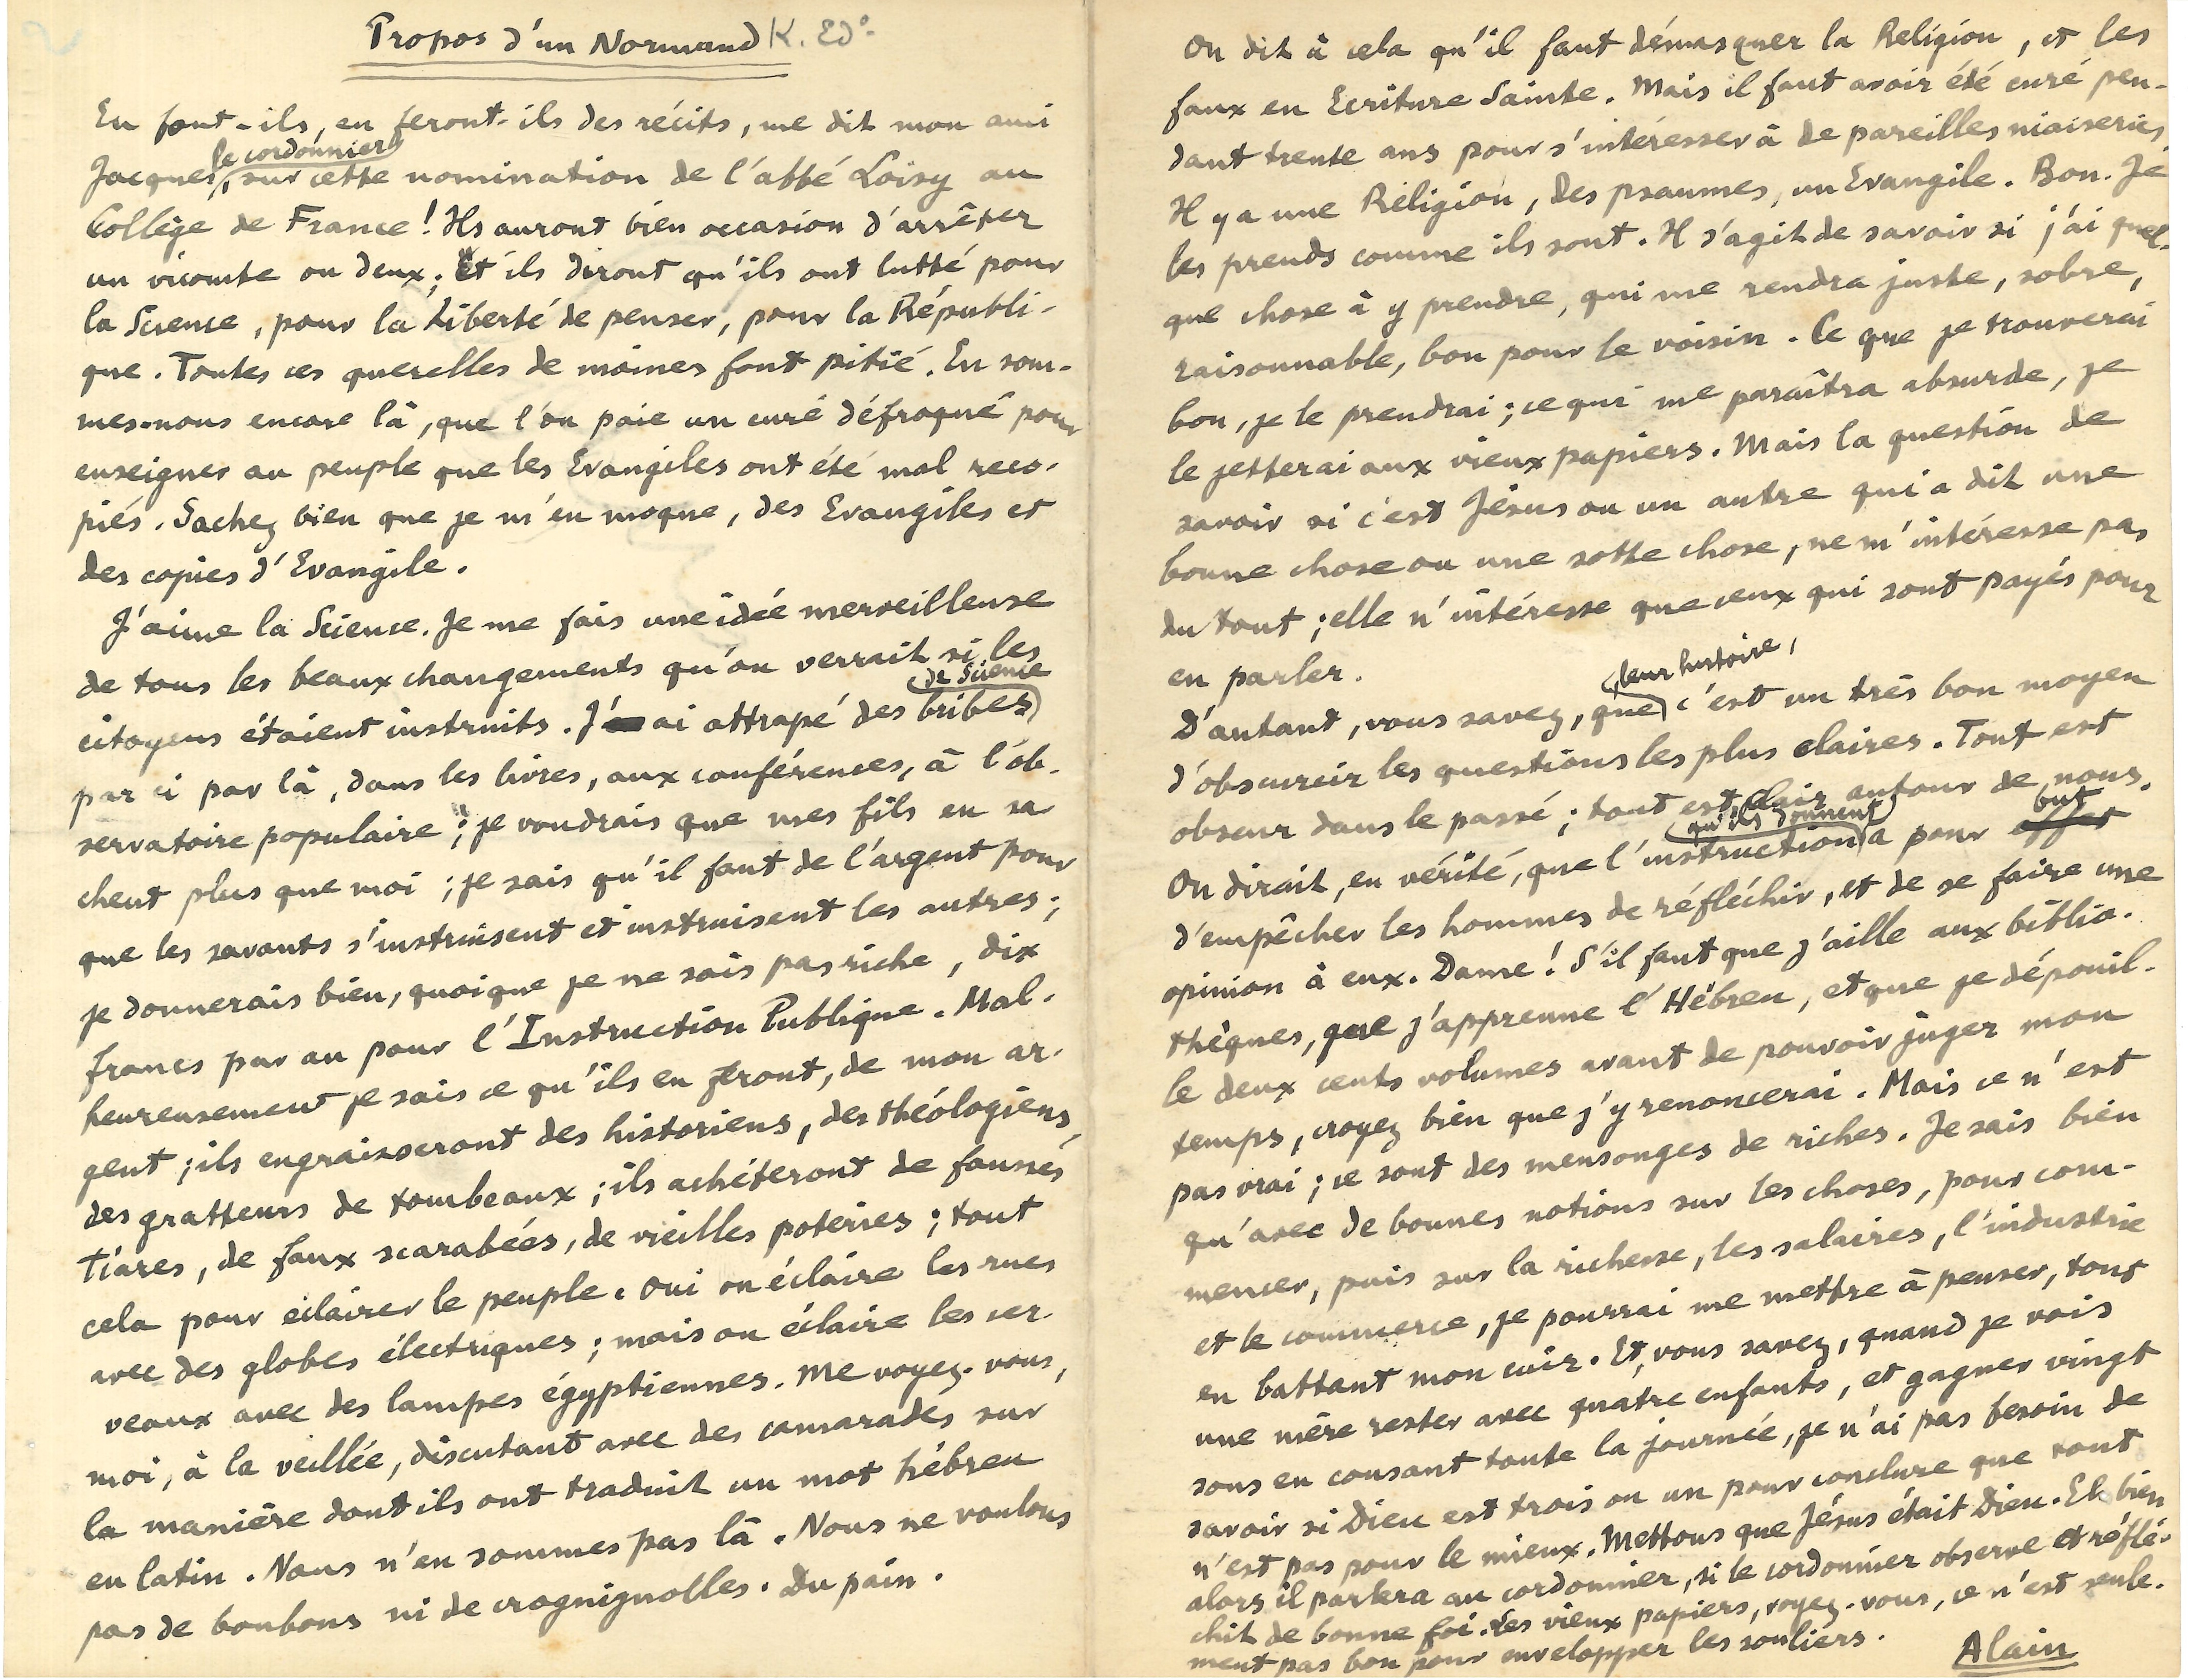 Propos d'un Normand K. Ed°
En font-ils, en feront-ils des récits, me dit mon ami
le cordonnier
Jacques, sur cette nomination de l'abbé Loisy au
Collège de France ! Ils auront bien occasion d'arrêter
un vicomte ou deux ; et ils diront qu'ils ont lutté pour
la Science, pour la Liberté de penser, pour la Républi-
que. Toutes ces querelles de moines font pitié. En som-
mes-nous encore là, que l'on paie un curé défroqué pour
enseigner au peuple que les Evangiles ont été mal reco-
piés. Sachez bien que je m'en moque, des Evangiles et
des copies d'Evangile.
J'aime la Science. Je me fais une idée merveilleuse
de tous les beaux changements qu'on verrait si les
de Science
citoyens étaient instruits. J'ai attrapé des bribes
par ci par là, dans les livres, aux conférences, à l'ob-
servatoire populaire ; je voudrais que mes fils en sa-
chent plus que moi ; je sais qu'il faut de l'argent pour
que les savants s'instruisent et instruisent les autres ;
je donnerais bien, quoique je ne sois pas riche, dix
francs par an pour l'Instruction Publique. Mal-
heureusement je sais ce qu'ils en feront, de mon ar-
gent ; ils engraisseront des historiens, des théologiens,
des gratteurs de tombeaux ; ils achèteront de fausses
Tiares, de faux scarabées, de vieilles poteries ; tout
cela pour éclairer le peuple. Oui on éclaire les rues
avec des globes électriques ; mais on éclaire les cer-
veaux avec des lampes égyptiennes. Me voyez-vous,
moi, à la veillée, discutant avec des camarades sur
la manière dont ils ont traduit un mot hébreu
en latin. Nous n'en sommes pas là. Nous ne voulons
pas de bonbons ni de croquignolles. Du pain.
On dit à cela qu'il faut démasquer la Religion, et les
faux en Ecriture Sainte. Mais il faut avoir été curé pen-
dant trente ans pour s'intéresser à de pareilles niaiseries.
Il y a une Religion, des psaumes, un Evangile. Bon. Je
les prends comme ils sont. Il s'agit de savoir si j'ai quel-
que chose à y prendre, qui me rendra juste, sobre,
raisonnable, bon pour le voisin. Ce que je trouverai
bon, je le prendrai ; ce qui me paraîtra absurde, je
le jetterai aux vieux papiers. Mais la question de
savoir si c'est Jésus ou un autre qui a dit une
bonne chose ou une sotte chose, ne m'intéresse pas
du tout ; elle n'intéresse que ceux qui sont payés pour
en parler.
leur histoire,
D'autant, vous savez, que c'est un très bon moyen
d'obscurcir les questions les plus claires. Tout est
obscur dans le passé ; tout est clair autour de nous.
qu'ils donnent but
On dirait, en vérité, que l'instruction a pour effet
d'empêcher les hommes de réfléchir, et de se faire une
opinion à eux. Dame ! S'il faut que j'aille aux biblio-
thèques, que j'apprenne l'Hébreu, et que je dépouil-
le deux cents volumes avant de pouvoir juger mon
temps, croyez bien que j'y renoncerai. Mais ce n'est
pas vrai ; ce sont des mensonges de riches. Je sais bien
qu'avec de bonnes notions sur les choses, pour com-
mencer, puis sur la richesse, les salaires, l'industrie
et le commerce, je pourrai me mettre à penser, tout
en battant mon cuir. Et, vous savez, quand je vois
une mère rester avec quatre enfants, et gagner vingt
sous en cousant toute la journée, je n'ai pas besoin de
savoir si Dieu est trois ou un pour conclure que tout
n'est pas pour le mieux. Mettons que Jésus était Dieu. Eh bien
alors il parlera au cordonnier, si le cordonnier observe et réflé-
chit de bonne foi. Les vieux papiers, voyez-vous, ce n'est seule-
ment pas bon pour envelopper les souliers.
Alain